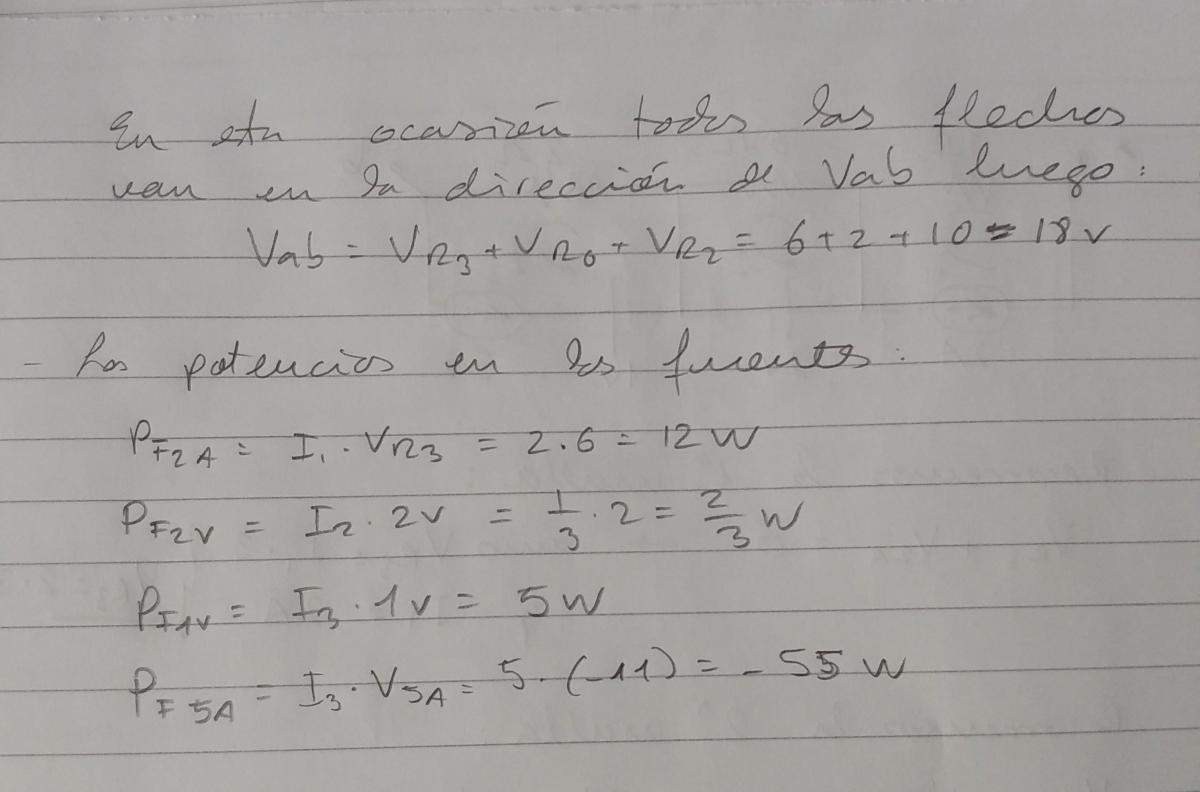 En esta ocasión todas las flechas
van en la dirección de Vab luego:
Vab = VR3 + VR0 + VR2 = 6 + 2 + 10 = 18 v
- Las potencias en las fuentes:
PF2A = I1 · VR3 = 2 · 6 = 12 W
PF2V = I2 · 2v = 1/3 · 2 = 2/3 W
PF1V = I3 · 1v = 5 W
PF5A = I3 · V5A = 5 · (-11) = - 55 W